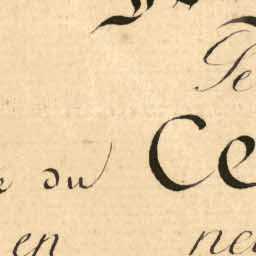 Pe
e du Ce
en ne